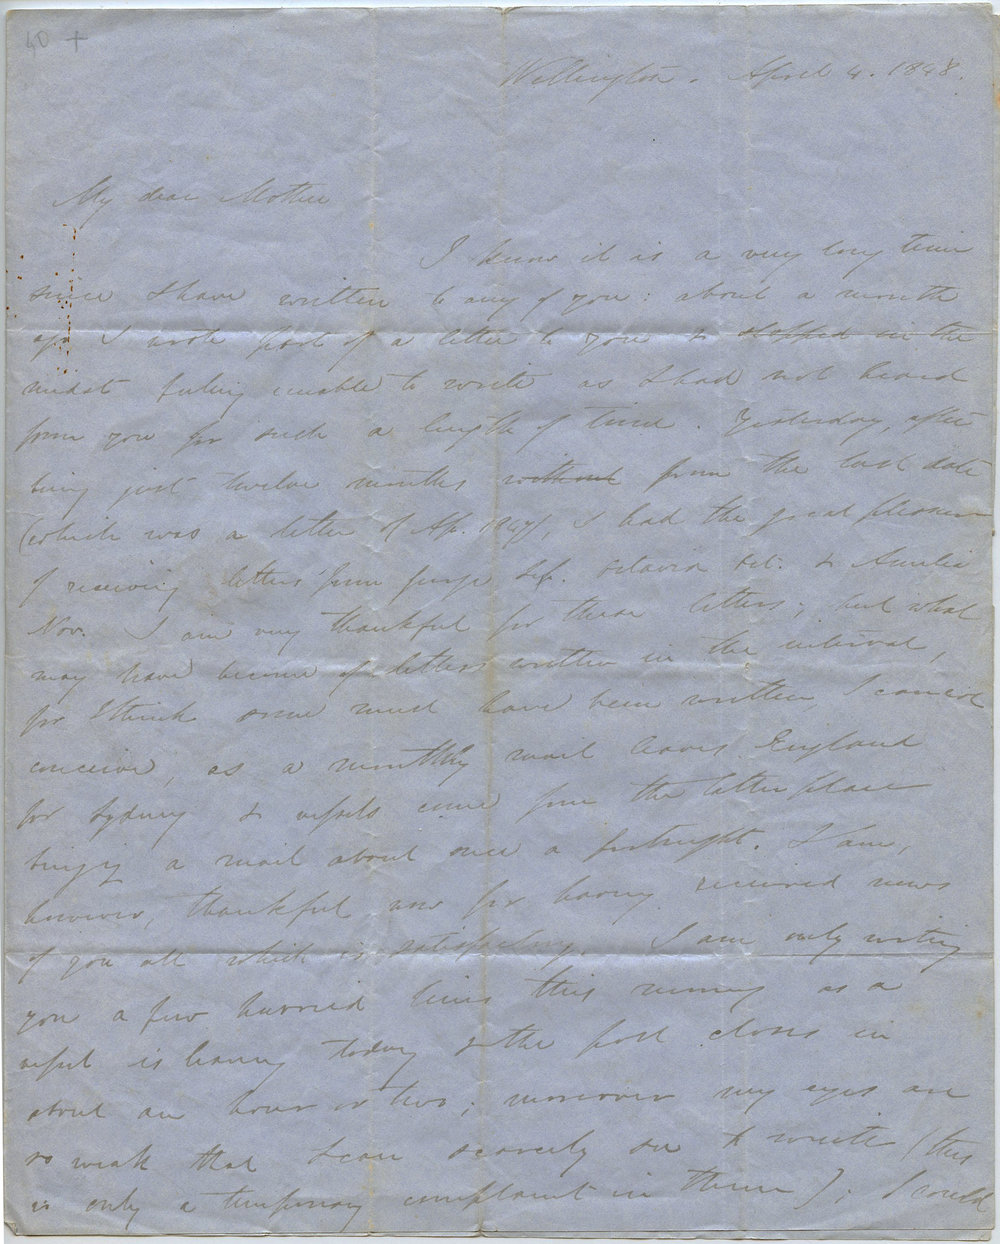 40 +
Wellington. April 4. 1848.
My dear Mother
I know it is a very long time
since I have written to any of you: about a month
ago I wrote part of a letter to you & stopped in the
midst feeling unable to write as I had not heard
from you for such a length of time. Yesterday, after
being just twelve months without from the last date
(which was a letter of Ap. 1847), I had the great pleasure
of receiving letters from George Sep. Octavia Oct. & Amelia
Nov. I am very thankful for these letters; but what
may have become of letters written in the interval,
for I think some must have been written, I cannot
conceive, as a monthly mail leaves England
for Sydney & vessels come from the latter place
bringing a mail about once a fortnight. I am,
however, thankful now for having received news
of you all which is satisfactory. I am only writing
you a few hurried lines this morning as a
vessel is leaving today & the post closes in
about an hour or two; moreover my eyes are
so weak that I can scarcely see to write (this
is only a temporary complaint in them); I could